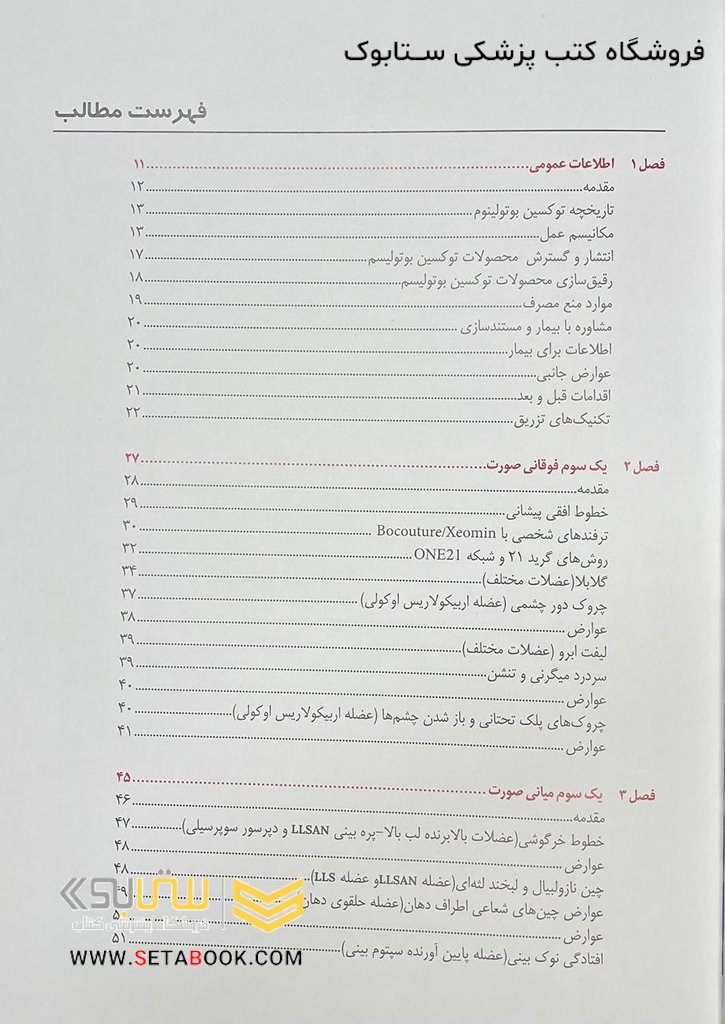 فروشگاه کتب پزشکی ستابوک
فهرست مطالب
فصل ۱ اطلاعات عمومی ۱۱
مقدمه ۱۲
تاریخچه توکسین بوتولینوم ۱۳
مکانیسم عمل ۱۳
انتشار و گسترش محصولات توکسین بوتولیسم ۱۷
رقیق‌سازی محصولات توکسین بوتولیسم ۱۸
موارد منع مصرف ۱۹
مشاوره با بیمار و مستندسازی ۲۰
اطلاعات برای بیمار ۲۰
عوارض جانبی ۲۰
اقدامات قبل و بعد ۲۱
تکنیک‌های تزریق ۲۲
فصل ۲ یک سوم فوقانی صورت ۲۷
مقدمه ۲۸
خطوط افقی پیشانی ۲۹
ترفندهای شخصی با Bocouture/Xeomin ۳۰
روش‌های گرید ۲۱ و شبکه ONE21 ۳۲
گلابلا(عضلات مختلف) ۳۴
چروک دور چشمی (عضله اربیکولاریس اوکولی) ۳۷
عوارض ۳۸
لیفت ابرو (عضلات مختلف) ۳۹
سردرد میگرنی و تنشن ۳۹
عوارض ۴۰
چروک‌های پلک تحتانی و باز شدن چشم‌ها (عضله اربیکولاریس اوکولی) ۴۰
عوارض ۴۱
فصل ۳ یک سوم میانی صورت ۴۵
مقدمه ۴۶
خطوط خرگوشی(عضلات بالابرنده لب بالا-پره بینی LLSAN و دپرسور سوپرسیلی) ۴۷
عوارض ۴۸
چین نازولبیال و لبخند لثه‌ای(عضله LLSANو عضله LLS) ۴۸
عوارض چین‌های شعاعی اطراف دهان(عضله حلقوی دهان)
عوارض
افتادگی نوک بینی(عضله پایین آورنده سپتوم بینی) ۵۱
ستابوک
فروشگاه اینترنتی کتاب
WWW.SETABOOK.COM